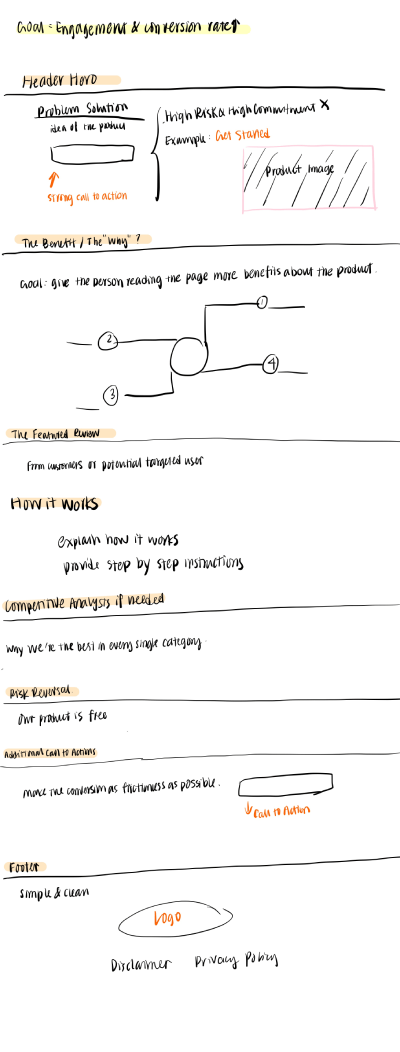 Goal: Engagement & conversion rate↑
Header Hero
Problem Solution
idea of the product
Strong call to action
.High Risk & High Commitment X
Example: Get Started
Product Image
The Benefit / The "Why"?
Goal: give the person reading the page more benefits about the product.
1
2
3
4
The Featured Review
From customers or potential targeted user
How it works
explain how it works
provide step by step instructions
Competitive Analysis if needed
Why we're the best in every single category.
Risk Reversal
Our product is free
Additional Call to Actions
Make the conversion as frictionless as possible.
Call to Action
Footer
Simple & clean
Logo
Disclaimer Privacy Policy